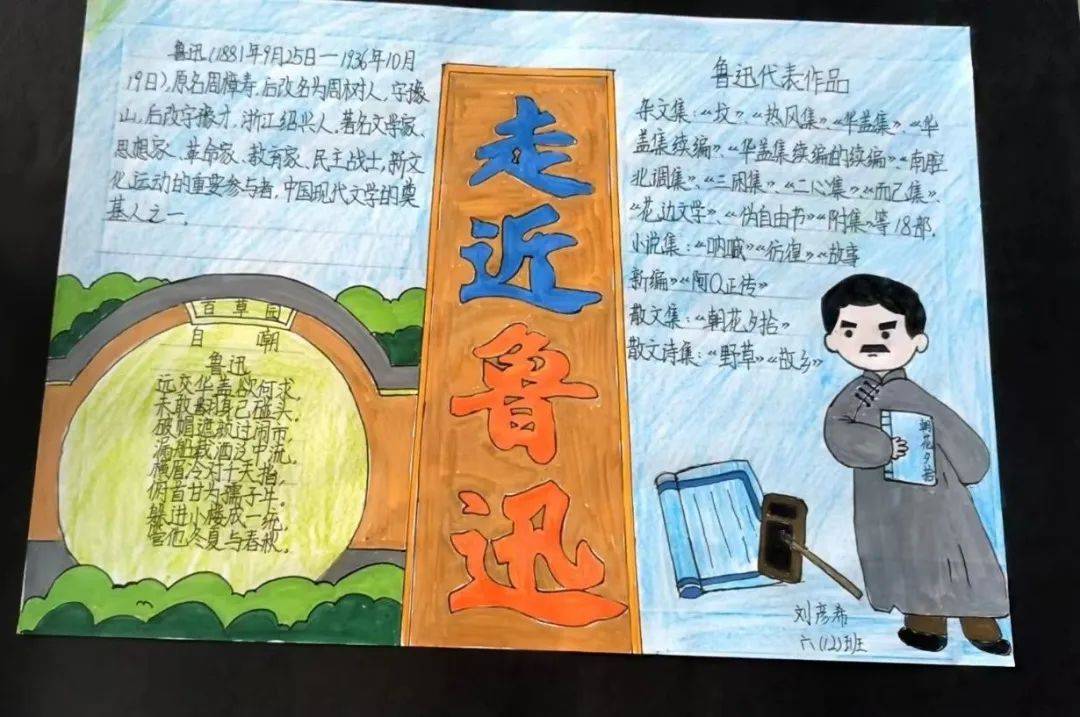 鲁迅(1881年9月25日一1936年10月
19日),原名周樟寿,后改名为周树人,字豫
山,后改字豫才,浙江绍兴人,著名文学家、
思想家、革命家、教育家、民主战士,新文
化运动的重要参与者,中国现代文学的奠
基人之一.
百草园
自嘲
鲁迅
远交华盖欲何求,
未敢翻身已碰头.
破帽遮颜过闹市,
漏船载酒泛中流.
横眉冷对千夫指,
俯首甘为孺子牛.
躲进小楼成一统,
管他冬夏与春秋.
走近鲁迅
鲁迅代表作品
杂文集:《坟》、《热风集》《华盖集》、《华
盖集续编》、《华盖集续编的续编》《南腔
北调集》、《三闲集》、《二心集》《而已集》、
《花边文学》、《伪自由书》《附集》等18部.
小说集:《呐喊》《彷徨》《故事
新编》《阿Q正传》
散文集:《朝花夕拾》
散文诗集:《野草》《故乡》
朝花夕拾
刘彦希
六(12)班